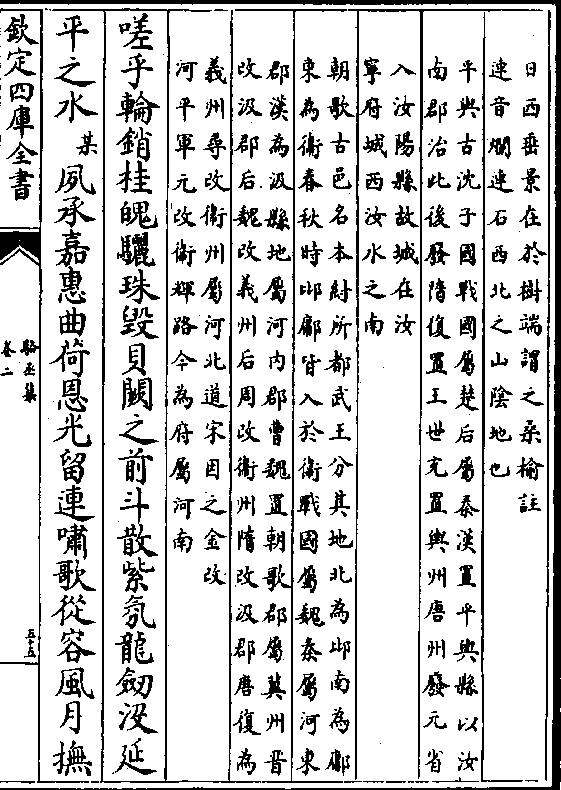 日西垂景在於樹端謂之桑榆註
連音爛連石西北之山陰地也
平輿古沈子國戰國屬楚后屬秦漢置平輿縣以汝
南郡治此後廢隋復置王世充置輿州唐州廢元省
入汝陽縣故城在汝
寧府城西汝水之南
朝歌古邑名本紂所都武王分其地北為邶南為鄘
東為衛春秋時邶鄘皆入於衛戰國屬魏秦屬河東
郡漢為汲縣地屬河内郡曹魏置朝歌郡屬冀州晉
改汲郡后魏改義州后周改衛州隋改汲郡唐復為
義州尋改衛州屬河北道宋因之金改
河平軍元改衛輝路今為府屬河南
嗟乎輪銷桂魄驪珠毀貝闕之前斗散紫氛龍劒没延
平之水某夙承嘉惠曲荷恩光留連嘯歌從容風月撫
欽定四庫全書
駱丞集
卷二
五十五